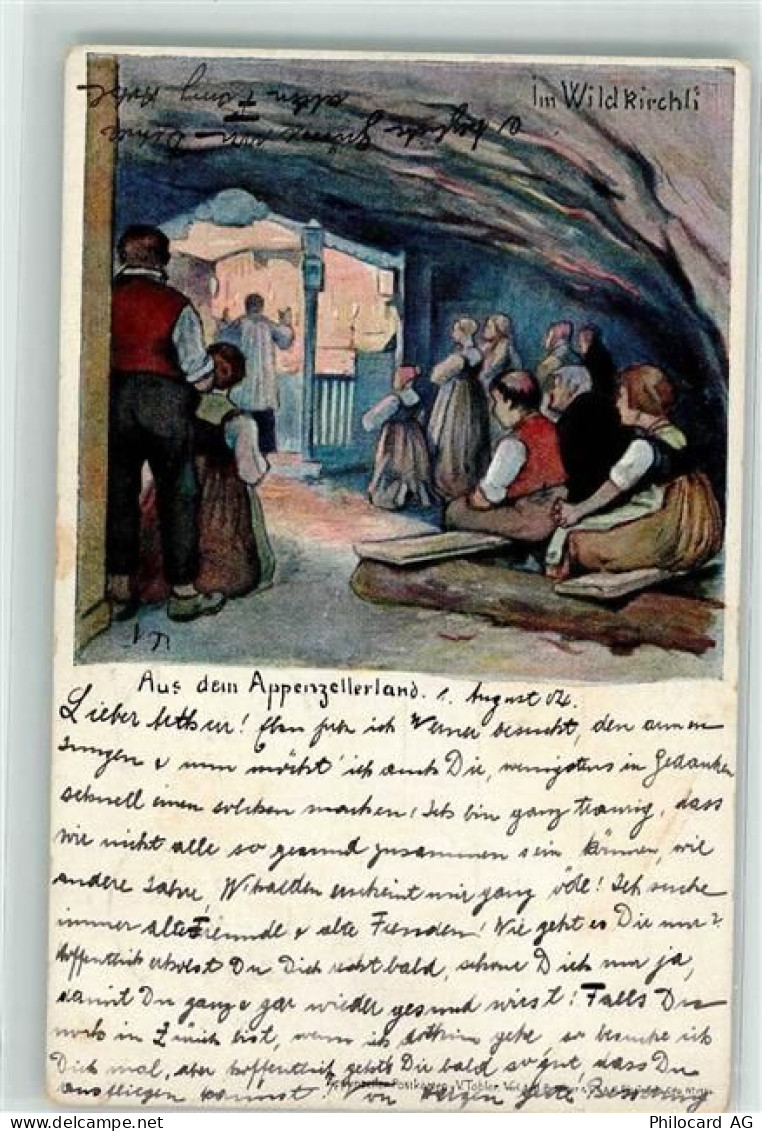 Im Wildkirchli
Aus dem Appenzellerland. 1. August 04.
Lieber Arthur! Eben hab ich Werner besucht, den armen
Jungen & nun möcht' ich auch Dir, wenigstens in Gedanken
schnell einen solchen machen! Ich bin ganz traurig, dass
wir nicht alle so gesund zusammen sein können, wie
andere Jahre, erscheint mir ganz öde! Ich suche
immer alte Freunde & alte Freuden! Wie geht es Dir nur?
Hoffentlich erholst Du Dich recht bald, schone Dich nur ja,
damit Du ganz & gar wieder gesund wirst! Falls Du
noch in Zürich bist, wenn ich dorthin gehe, so besuche ich
Dich mal, aber hoffentlich geht's Dir bald so gut, dass Du
ausfliegen kannst! Von Herzen gute Besserung
& herzlich Grüsse von Deiner
alten
Postkarten V. Tobler
Philocard AG